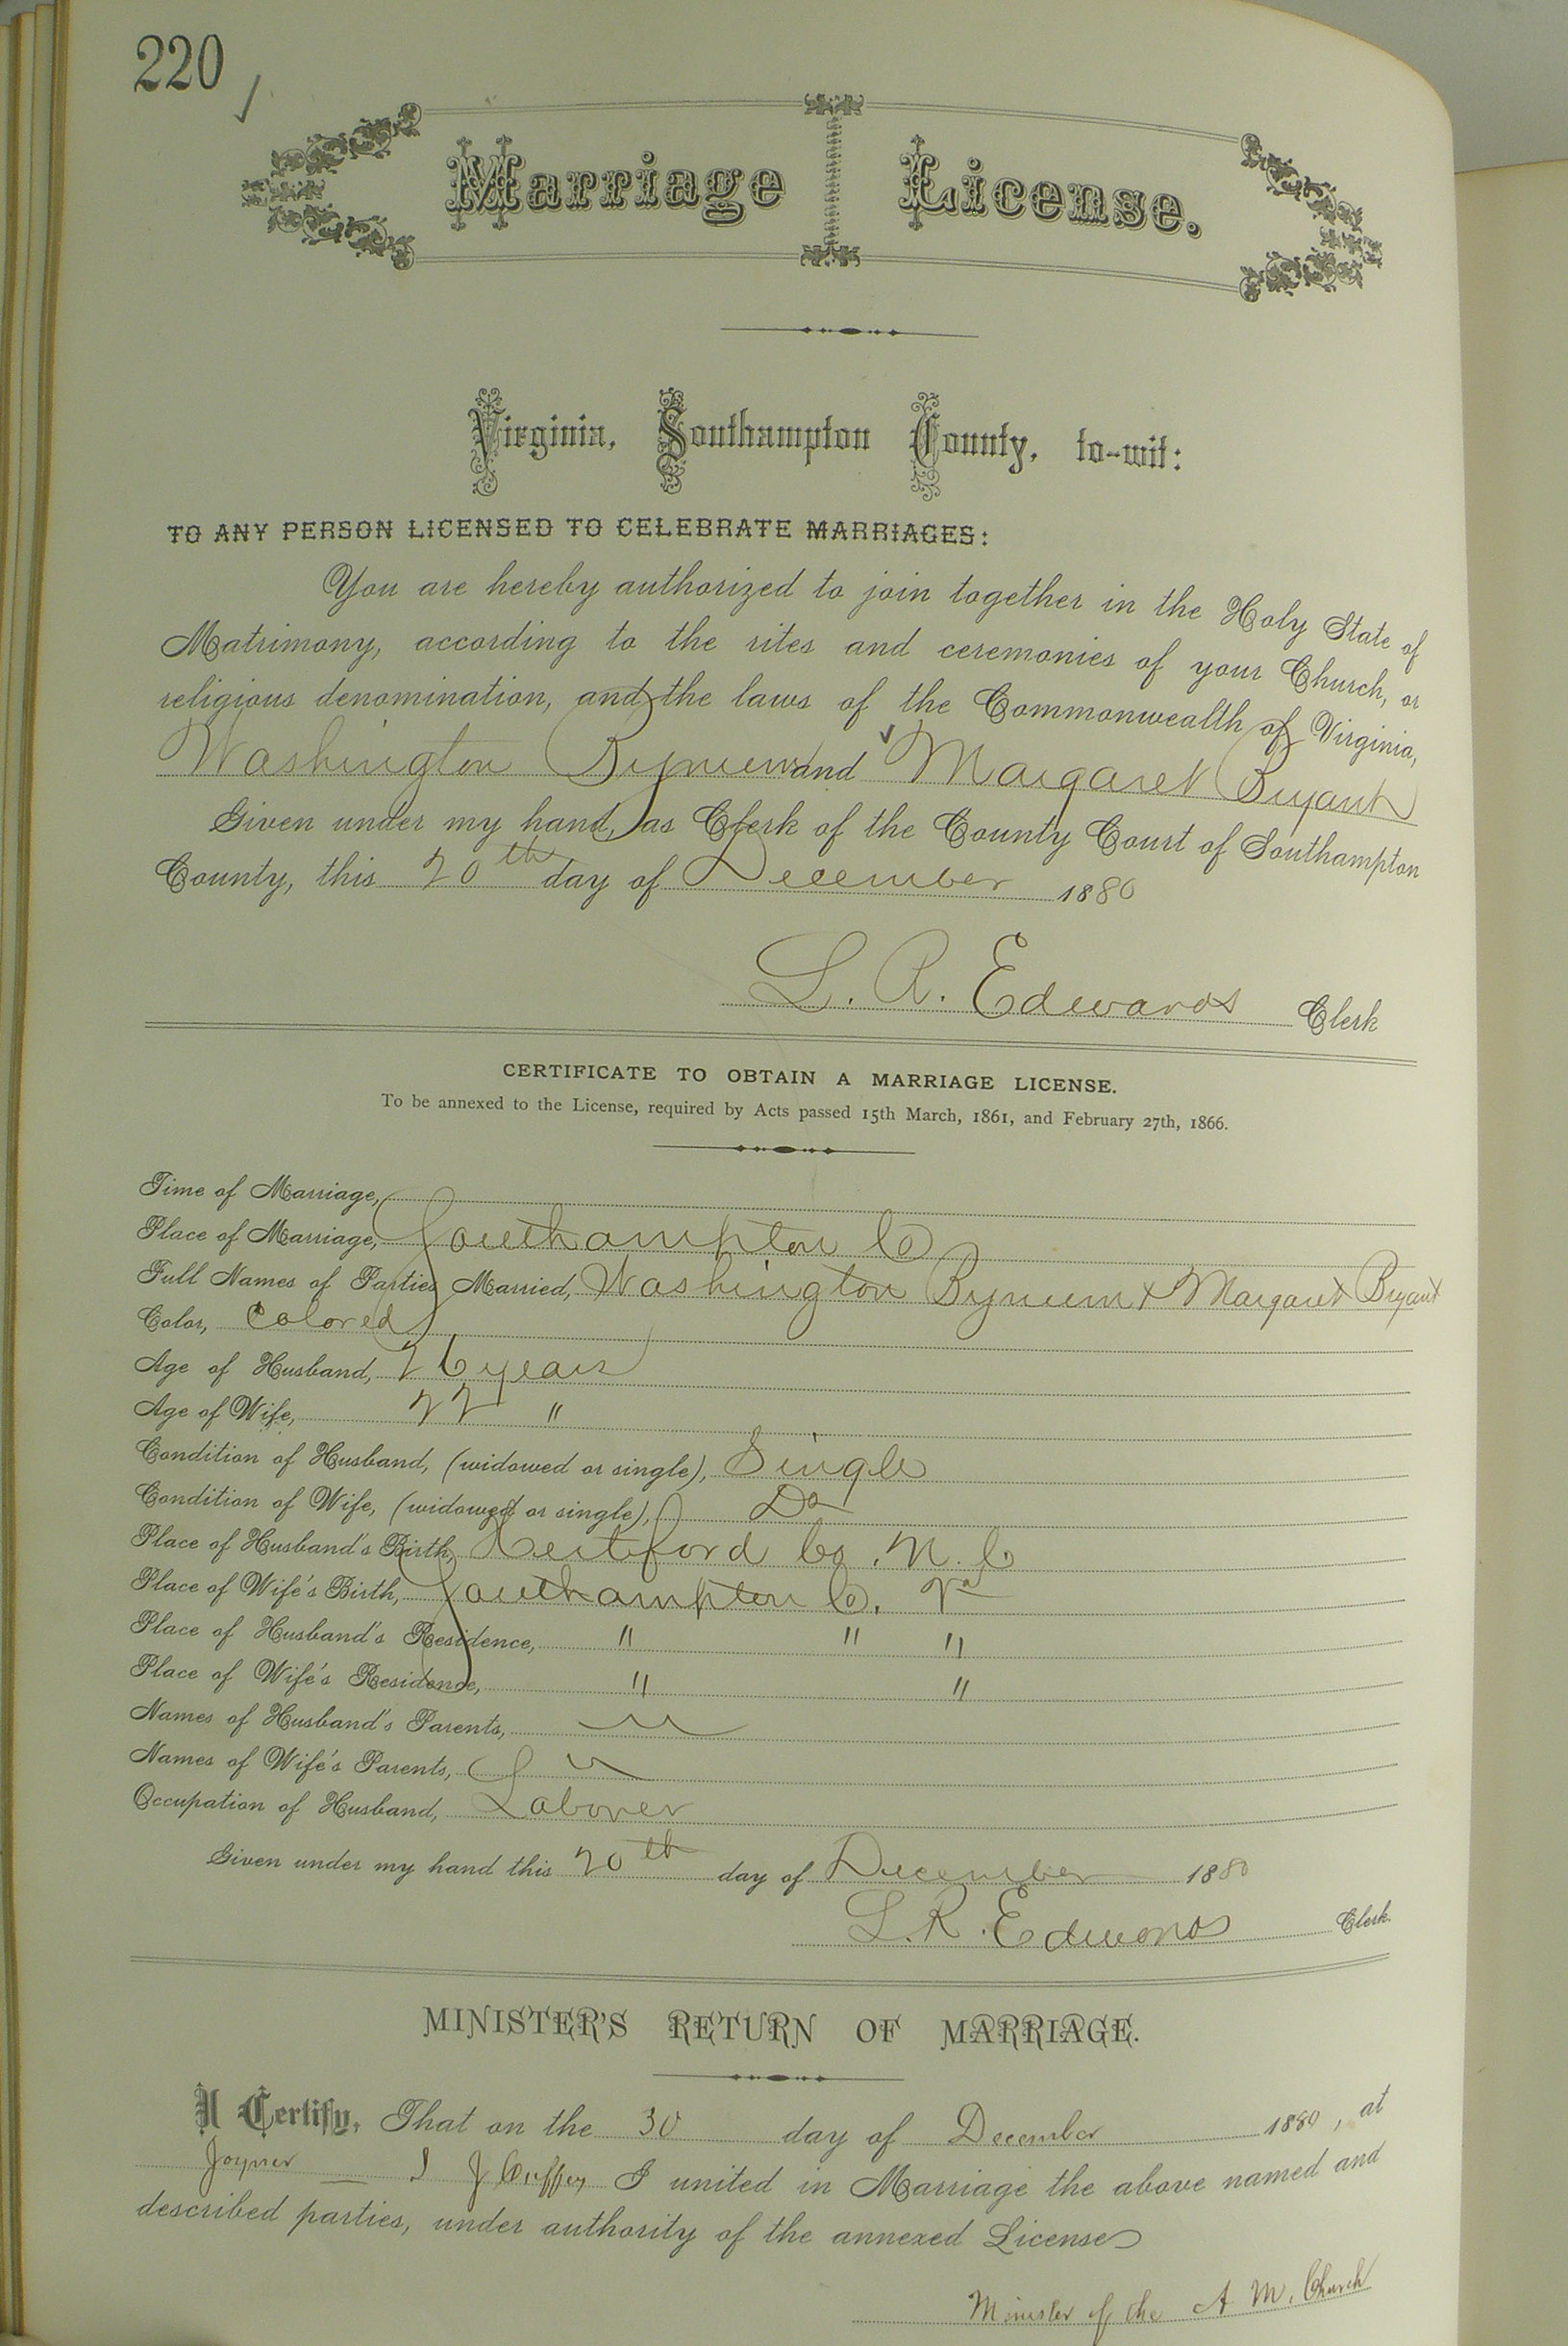 220
Marriage License.
Virginia, Southampton County, to-wit:
TO ANY PERSON LICENSED TO CELEBRATE MARRIAGES:
You are hereby authorized to join together in the Holy State of
Matrimony, according to the rites and ceremonies of your Church, or
religious denomination, and the laws of the Commonwealth of Virginia,
Washington Bynum and Margaret Bryant
Given under my hand, as Clerk of the County Court of Southampton
County, this 20th day of December 1880
L. R. Edwards Clerk
CERTIFICATE TO OBTAIN A MARRIAGE LICENSE.
To be annexed to the License, required by Acts passed 15th March, 1861, and February 27th, 1866.
Time of Marriage,
Place of Marriage, Southampton Co
Full Names of Parties Married, Washington Bynum & Margaret Bryant
Color, Colored
Age of Husband, 26 years
Age of Wife, 22 "
Condition of Husband, (widowed or single), Single
Condition of Wife, (widowed or single), Do
Place of Husband's Birth, Hertford Co. N. C
Place of Wife's Birth, Southampton Co. Va
Place of Husband's Residence, " " "
Place of Wife's Residence, " "
Names of Husband's Parents,
Names of Wife's Parents,
Occupation of Husband, Laborer
Given under my hand this 20th day of December 1880
L. R. Edwards Clerk.
MINISTER'S RETURN OF MARRIAGE.
I Certify, That on the 30 day of December 1880, at
Joyner I J Cuffey I united in Marriage the above named and
described parties, under authority of the annexed License
Minister of the A M. Church